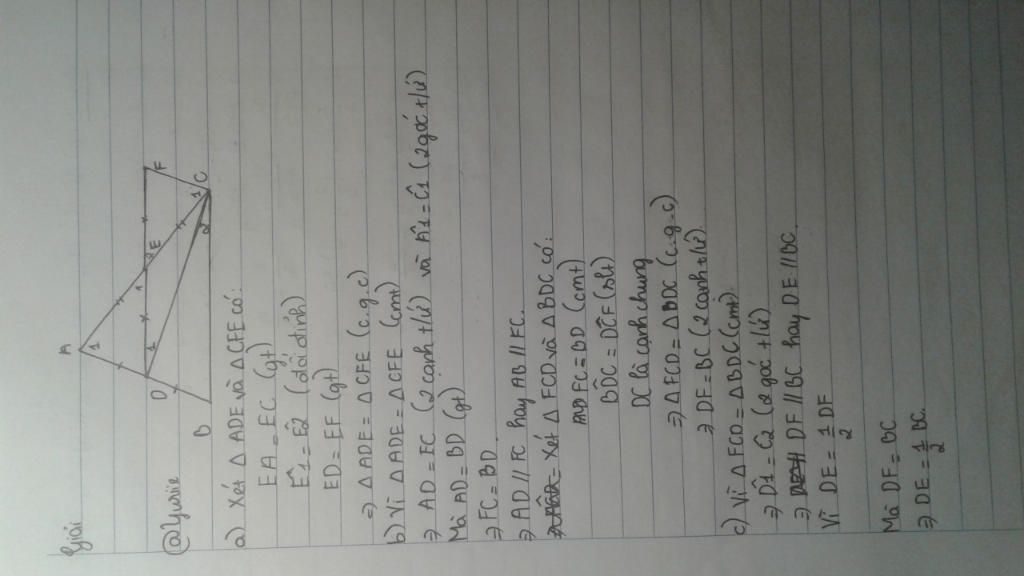 Giải
A
D
1
1
1
2
E
F
B
2
1
C
@Yuriie
a) Xét Δ ADE và Δ CFE có:
EA = EC (gt)
Ê1 = Ê2 (đối đỉnh)
ED = EF (gt)
⇒ Δ ADE = Δ CFE (c.g.c)
b) Vì Δ ADE = Δ CFE (cmt)
⇒ AD = FC (2 cạnh t/ứ) và Â1 = Ĉ1 (2 góc t/ứ)
Mà AD = BD (gt)
⇒ FC = BD.
⇒ AD // FC hay AB // FC.
Xét Δ FCD và Δ BDC có:
FC = BD (cmt)
BD̂C = DĈF (slt)
DC là cạnh chung
⇒ Δ FCD = Δ BDC (c.g.c)
⇒ DF = BC (2 cạnh t/ứ)
c) Vì Δ FCD = Δ BDC (cmt)
⇒ D̂1 = Ĉ2 (2 góc t/ứ)
⇒ DF // BC hay DE // BC.
Vì DE = 1/2 DF
Mà DF = BC
⇒ DE = 1/2 BC.